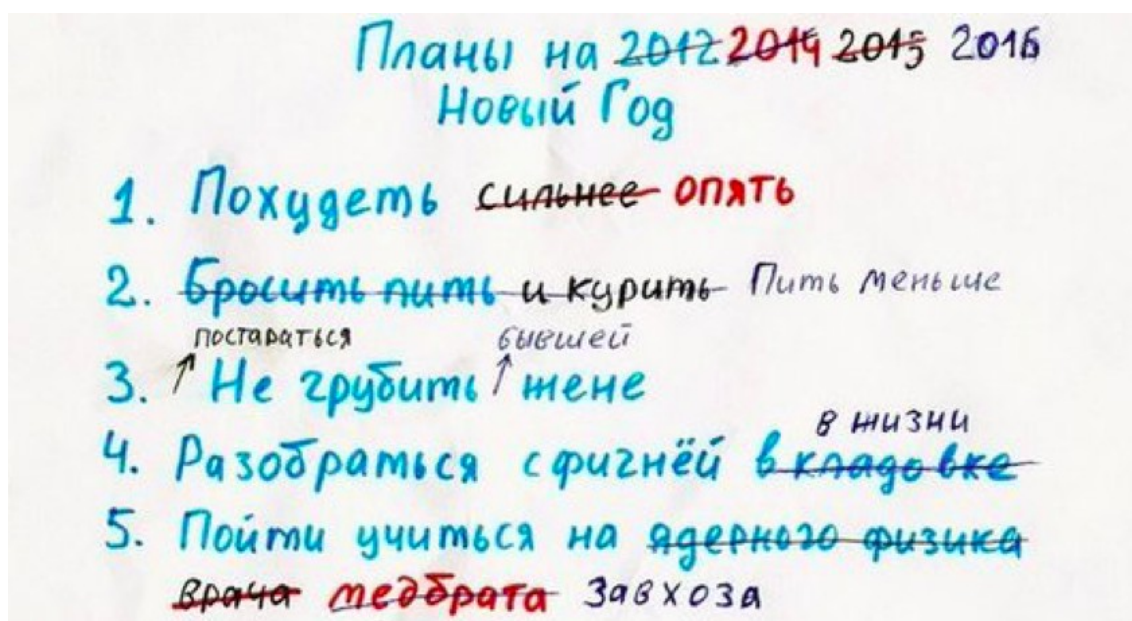 Планы на 2012 2014 2015 2016
Новый Год
1. Похудеть сильнее опять
2. Бросить пить и курить Пить меньше
постараться бывшей
3. Не грубить жене
в жизни
4. Разобраться с фигнёй в кладовке
5. Пойти учиться на ядерного физика
врача медбрата Завхоза